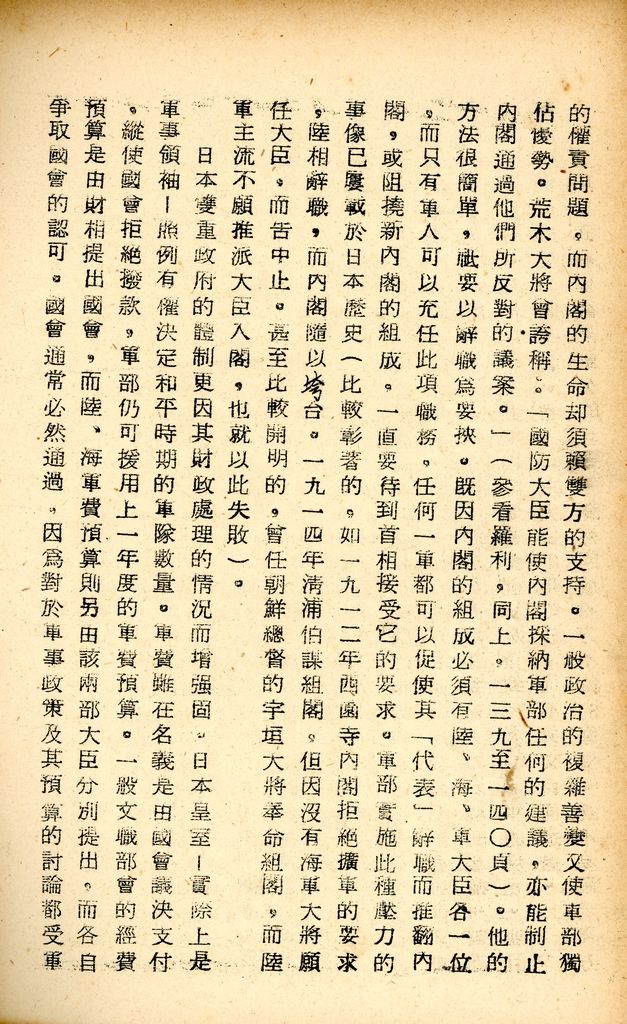 的權責問題。而內閣的生命却須賴雙方的支持。一般政治的複雜善變又使軍部獨
佔優勢。荒木大將會誇稱。「國防大臣能使內閣採納軍部任何的建議，亦能制止
內閣通過他們所反對的議案。」（參看羅利，同上。一三九至一四〇頁）。他的
方法很簡單，祗要以辭職爲要挾。既因內閣的組成必須有陸、海、軍大臣各一位
，而只有軍人可以充任此項職務。任何一軍都可以促使其「代表」辭職而推翻內
閣，或阻撓新內閣的組成。一直要待到首相接受它的要求。軍部實施此種壓力的
事像已屢載於日本歷史（比較彰著的，如一九一二年西園寺內閣拒絕擴軍的要求
，陸相辭職，而內閣隨以垮台。一九一四年清浦伯謀組閣，但因沒有海軍大將願
任大臣。而告中止。甚至比較開明的，曾任朝鮮總督的宇垣大將奉命組閣，而陸
軍主流不願推派大臣入閣，也就以此失敗）。
日本雙重政府的體制更因其財政處理的情況而增强固。日本皇至ー實際上是
軍事領袖ー照例有權決定和平時期的軍隊數量。軍費雖在名義是由國會議決支付
。縱使國會拒絕撥款，軍部仍可援用上一年度的軍費預算。一般文職部會的經費
預算是由財相提出國會，而陸、海軍費預算則另由該兩部大臣分別提出。而各自
爭取國會的認可。國會通常必然通過。因爲對於軍事政策及其預算的討論都受軍